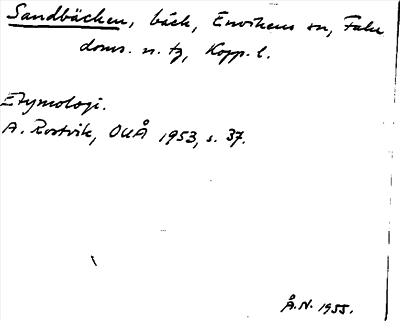 Sandbäcken, bäck, Envikens sn, Falu
doms. n. tg, Kopp. l.
Etymologi.
A. Rostvik, OUÅ 1953, s. 37.
Å.N. 1955.